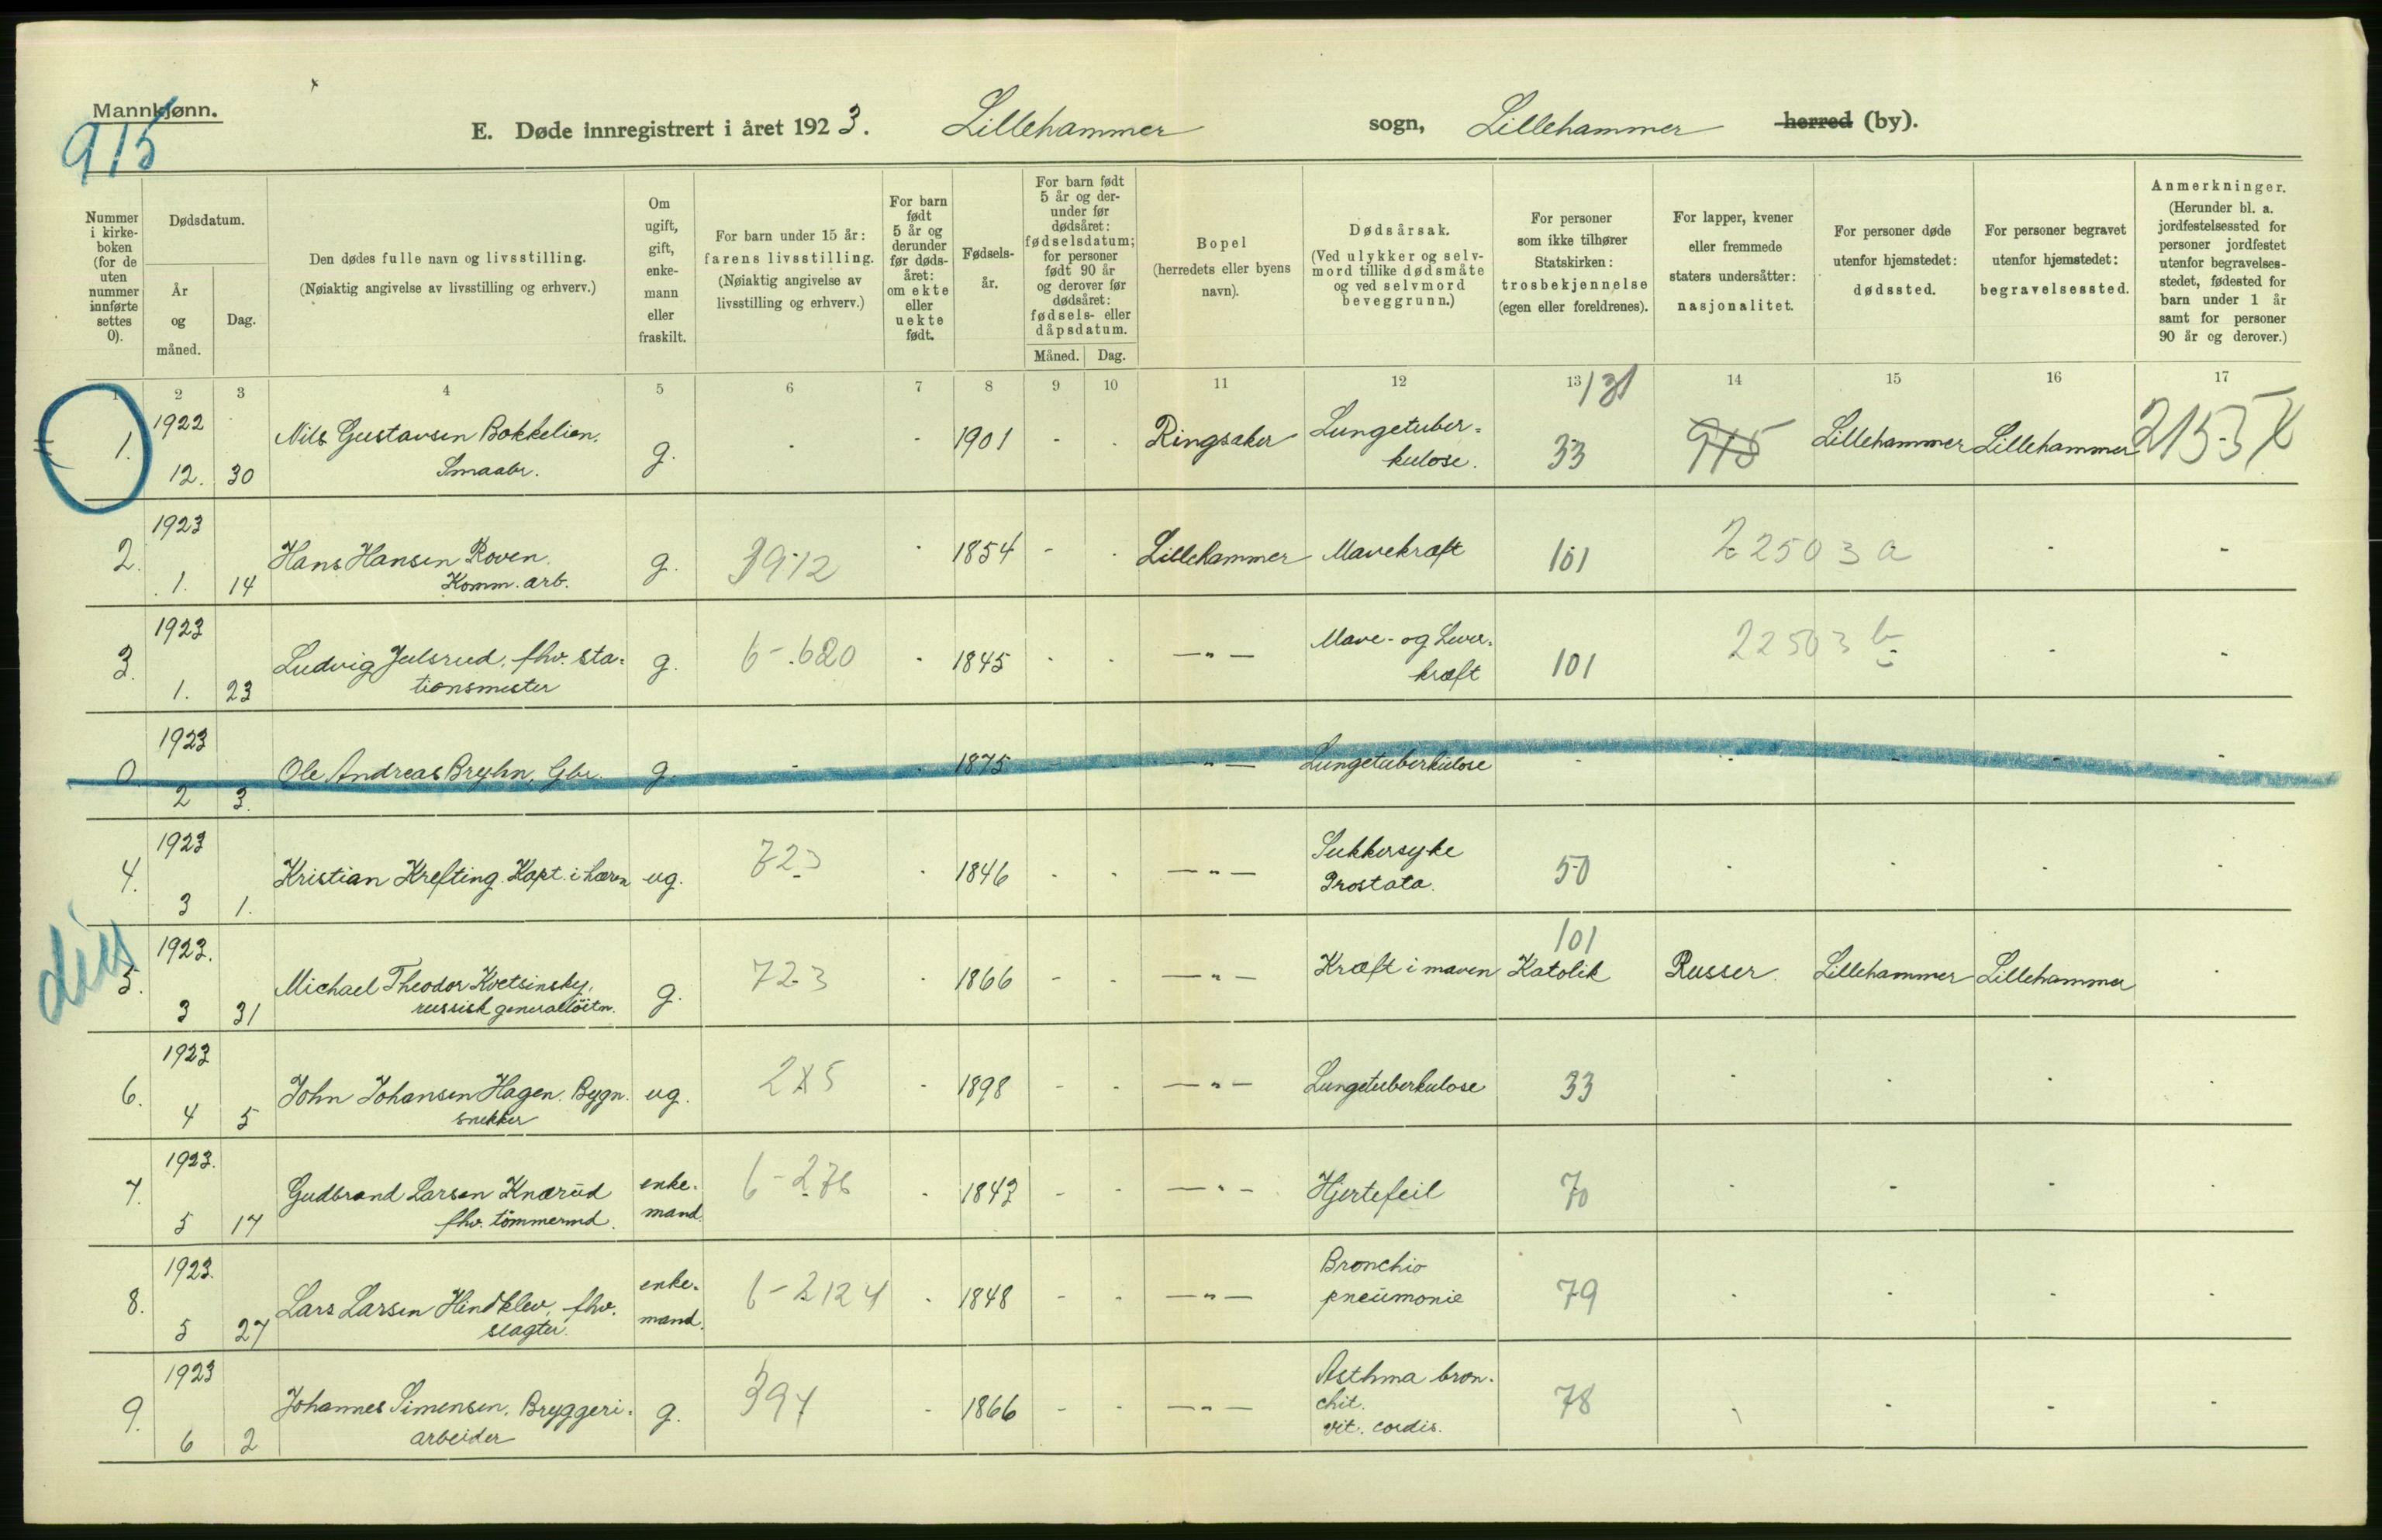 Mannkjønn.
915
E. Døde innregistrert i året 1923. Lillehammer sogn, Lillehammer herred (by).
Nummer i kirke-boken (for de uten nummer innførte settes 0).
Dødsdatum.
År og måned.
Dag.
Den dødes fulle navn og livsstilling.
(Nøiaktig angivelse av livsstilling og erhverv.)
Om ugift, gift, enke-mann eller fraskilt.
For barn under 15 år: farens livsstilling.
(Nøiaktig angivelse av livsstilling og erhverv.)
For barn født 5 år og derunder før døds-året: om ekte eller uekte født.
Fødsels-år.
For barn født 5 år og der-under før dødsåret: fødselsdatum; for personer født 90 år og derover før dødsåret: fødsels- eller dåpsdatum.
Måned. Dag.
Bopel (herredets eller byens navn).
Dødsårsak.
(Ved ulykker og selv-mord tillike dødsmåte og ved selvmord beveggrunn.)
For personer som ikke tilhører Statskirken: trosbekjennelse (egen eller foreldrenes).
For lapper, kvener eller fremmede staters undersåtter: nasjonalitet.
For personer døde utenfor hjemstedet: dødssted.
For personer begravet utenfor hjemstedet: begravelsessted.
Anmerkninger.
(Herunder bl. a. jordfestelsessted for personer jordfestet utenfor begravelses-stedet, fødested for barn under 1 år samt for personer 90 år og derover.)
1 2 3 4 5 6 7 8 9 10 11 12 13 14 15 16 17
131
1. 1922 12. 30 Nils Gustavsen Bakkelien. Smaabr. g. - - 1901 - - Ringsaker Lungetuber=kulose. 33 915 Lillehammer Lillehammer 2153 X
2. 1923 1. 14 Hans Hansen Roven. Komm. arb. g. 3912 - 1854 - - Lillehammer Mavekræft 101 22503 a - -
3. 1923 1. 23 Ludvig Julsrud, fhv. sta=tionsmester g. 6-.620 - 1845 - - —"— Mave- og Lever=kræft 101 22503 b - -
0 1923 2 3. Ole Andreas Bryhn, Gbr. g. - - 1875 - - —"— Lungetuberkulose - - - - -
4. 1923 3 1. Kristian Krefting. Kapt. i hæren ug. 723 - 1846 - - —"— Sukkersyke Prostata. 50 - - - -
dis
5. 1923. 3 31 Michael Theodor Kvetsinsky, russisk generalløitn. g. 723 - 1866 - - —"— Kræft i maven 101 Katolik Russer. Lillehammer Lillehammer -
6. 1923 4 5 John Johansen Hagen. Bygn. snekker ug. 2X5 - 1898 - - —"— Lungetuberkulose 33 - - - -
7. 1923. 5 17 Gudbrand Larsen Knærud fhv. tømmermd. enke-mand. 6-276 - 1843 - - —"— Hjertefeil 70 - - - -
8. 1923. 5 27 Lars Larsen Hindklev, fhv. slagter. enke-mand. 6-2124 - 1848 - - —"— Bronchio pneumonie 79 - - - -
9. 1923 6 2 Johannes Simensen. Bryggeri=arbeider g. 394 - 1866 - - —"— Asthma bron-chit. vit. cordis. 78 - - - -